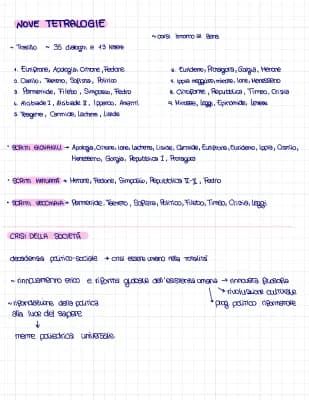 NOVE TETRALOGIE
~ corsi intorno al bene
~ Trasillo ~ 35 dialoghi e 13 lettere
1. Eutifrone, Apologia, Critone, Fedone
2. Cratilo, Teeteto, Sofista, Politico
3. Parmenide, Filebo, Simposio, Fedro
4. Alcibiade I, Alcibiade II, Ipparco, Amanti
5. Teagene, Carmide, Lachete, Liside
6. Eutidemo, Protagora, Gorgia, Menone
7. Ippia maggiore/minore, Ione, Menesseno
8. Clitofonte, Repubblica, Timeo, Crizia
9. Minosse, Leggi, Epinomide, Lettere
• SCRITTI GIOVANILI → Apologia, Critone, Ione, Lachete, Liside, Carmide, Eutifrone, Eutidemo, Ippia, Cratilo,
Menesseno, Gorgia, Repubblica I, Protagora
• SCRITTI MATURITÀ → Menone, Fedone, Simposio, Repubblica II-X, Fedro
• SCRITTI VECCHIAIA → Parmenide, Teeteto, Sofista, Politico, Filebo, Timeo, Crizia, Leggi
CRISI DELLA SOCIETÀ
decadenza politico-sociale → crisi essere umano nella totalità
~ rinnovamento etico e riforma globale dell'esistenza umana → rinnovata filosofia
→ rivoluzione culturale
→ prog. politico riformatore
~ rifondazione della politica
alla luce del sapere
↓
mente poliedrica universale